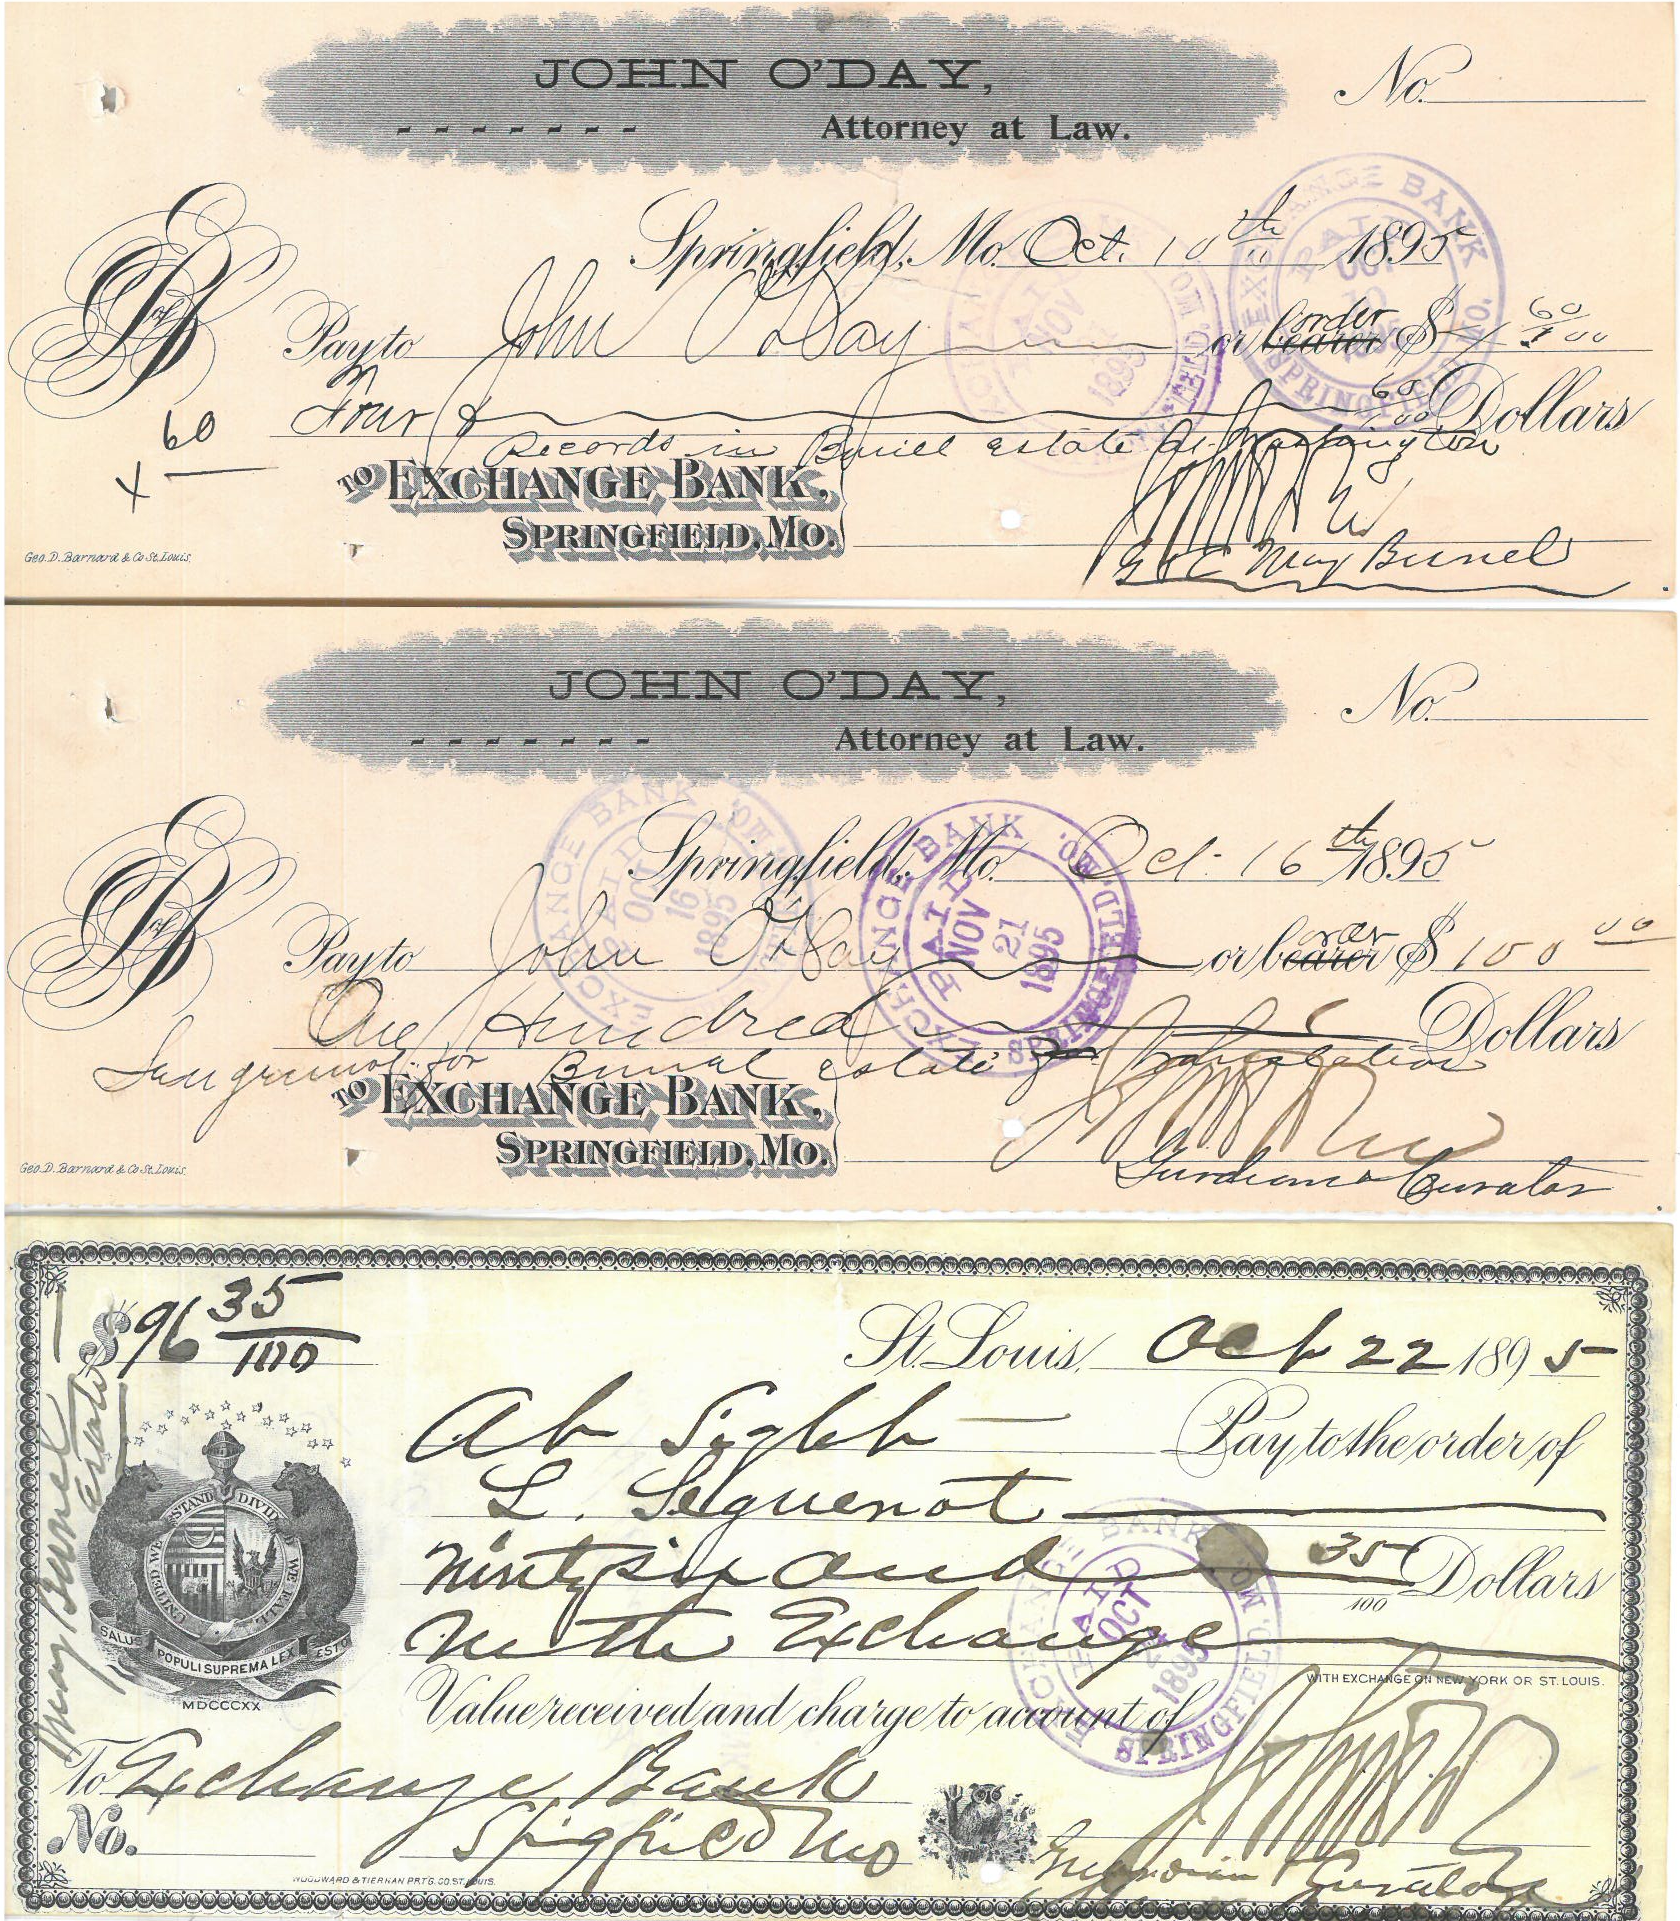 JOHN O'DAY,
Attorney at Law.
No.
Springfield, Mo. Oct. 10th 1895
Pay to John O'Day or bearer order $ 4 60/00
Four 60/00 Dollars
Records in Burel estate at Washington
60
X
TO EXCHANGE BANK,
SPRINGFIELD, MO.
G & C May Burnel
Geo. D. Barnard & Co St. Louis.
EXCHANGE BANK
PAID
OCT
10
1895
SPRINGFIELD, MO.
PAID
NOV
1895
JOHN O'DAY,
Attorney at Law.
No.
Springfield, Mo. Oct. 16th 1895
Pay to John O'Day or bearer order $ 100 00
One Hundred Dollars
for Burnel estate
TO EXCHANGE BANK,
SPRINGFIELD, MO.
Gurdian & Curator
Geo. D. Barnard & Co St. Louis.
EXCHANGE BANK
PAID
OCT
16
1895
EXCHANGE BANK
PAID
NOV
21
1895
SPRINGFIELD, MO.
$96 35/100
St. Louis, Oct 22 1895
At Sight Pay to the order of
L. Seguenot
Ninty six and 35/100 Dollars
with Exchange
WITH EXCHANGE ON NEW YORK OR ST. LOUIS.
Value received and charge to account of
To Exchange Bank
No. Spigfield Mo
Guardian & Curator
May Burnel Estate
UNITED WE STAND DIVIDED WE FALL
SALUS POPULI SUPREMA LEX ESTO
MDCCCXX
WOODWARD & TIERNAN PRT'G. CO. ST. LOUIS.
EXCHANGE BANK
PAID
OCT
1895
SPRINGFIELD, MO.